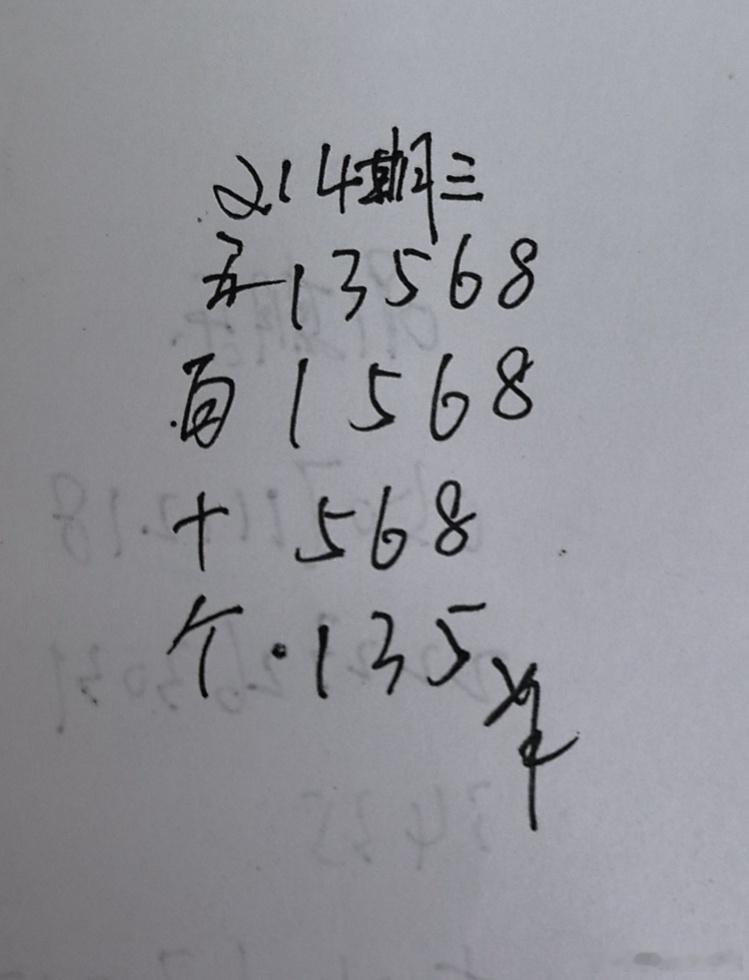 214期三
五13568
百1568
十568
个·135